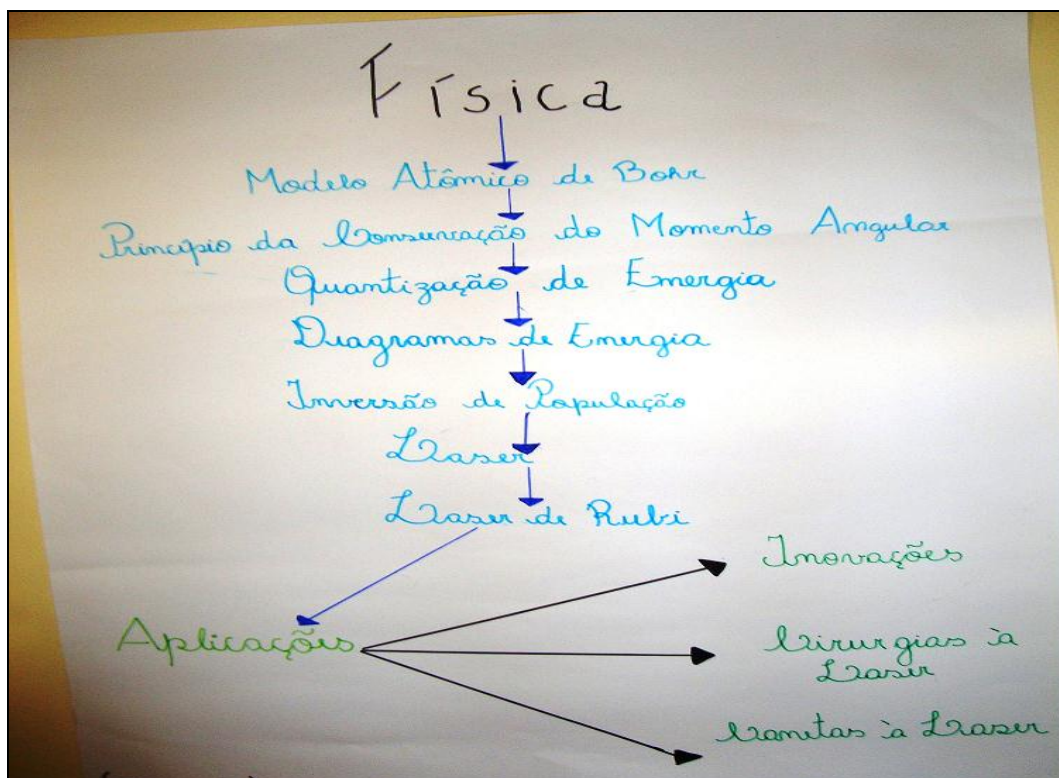 Física
Modelo Atômico de Bohr
Princípio da Conservação do Momento Angular
Quantização de Energia
Diagramas de Energia
Inversão de População
Laser
Laser de Rubi
Aplicações
Inovações
Cirurgias à
Laser
Canetas à Laser